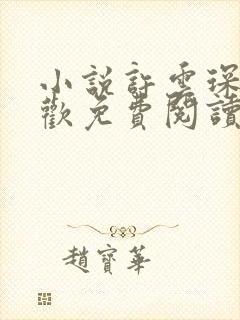 小說許雲琛
歡免費閱讀
趙寶華